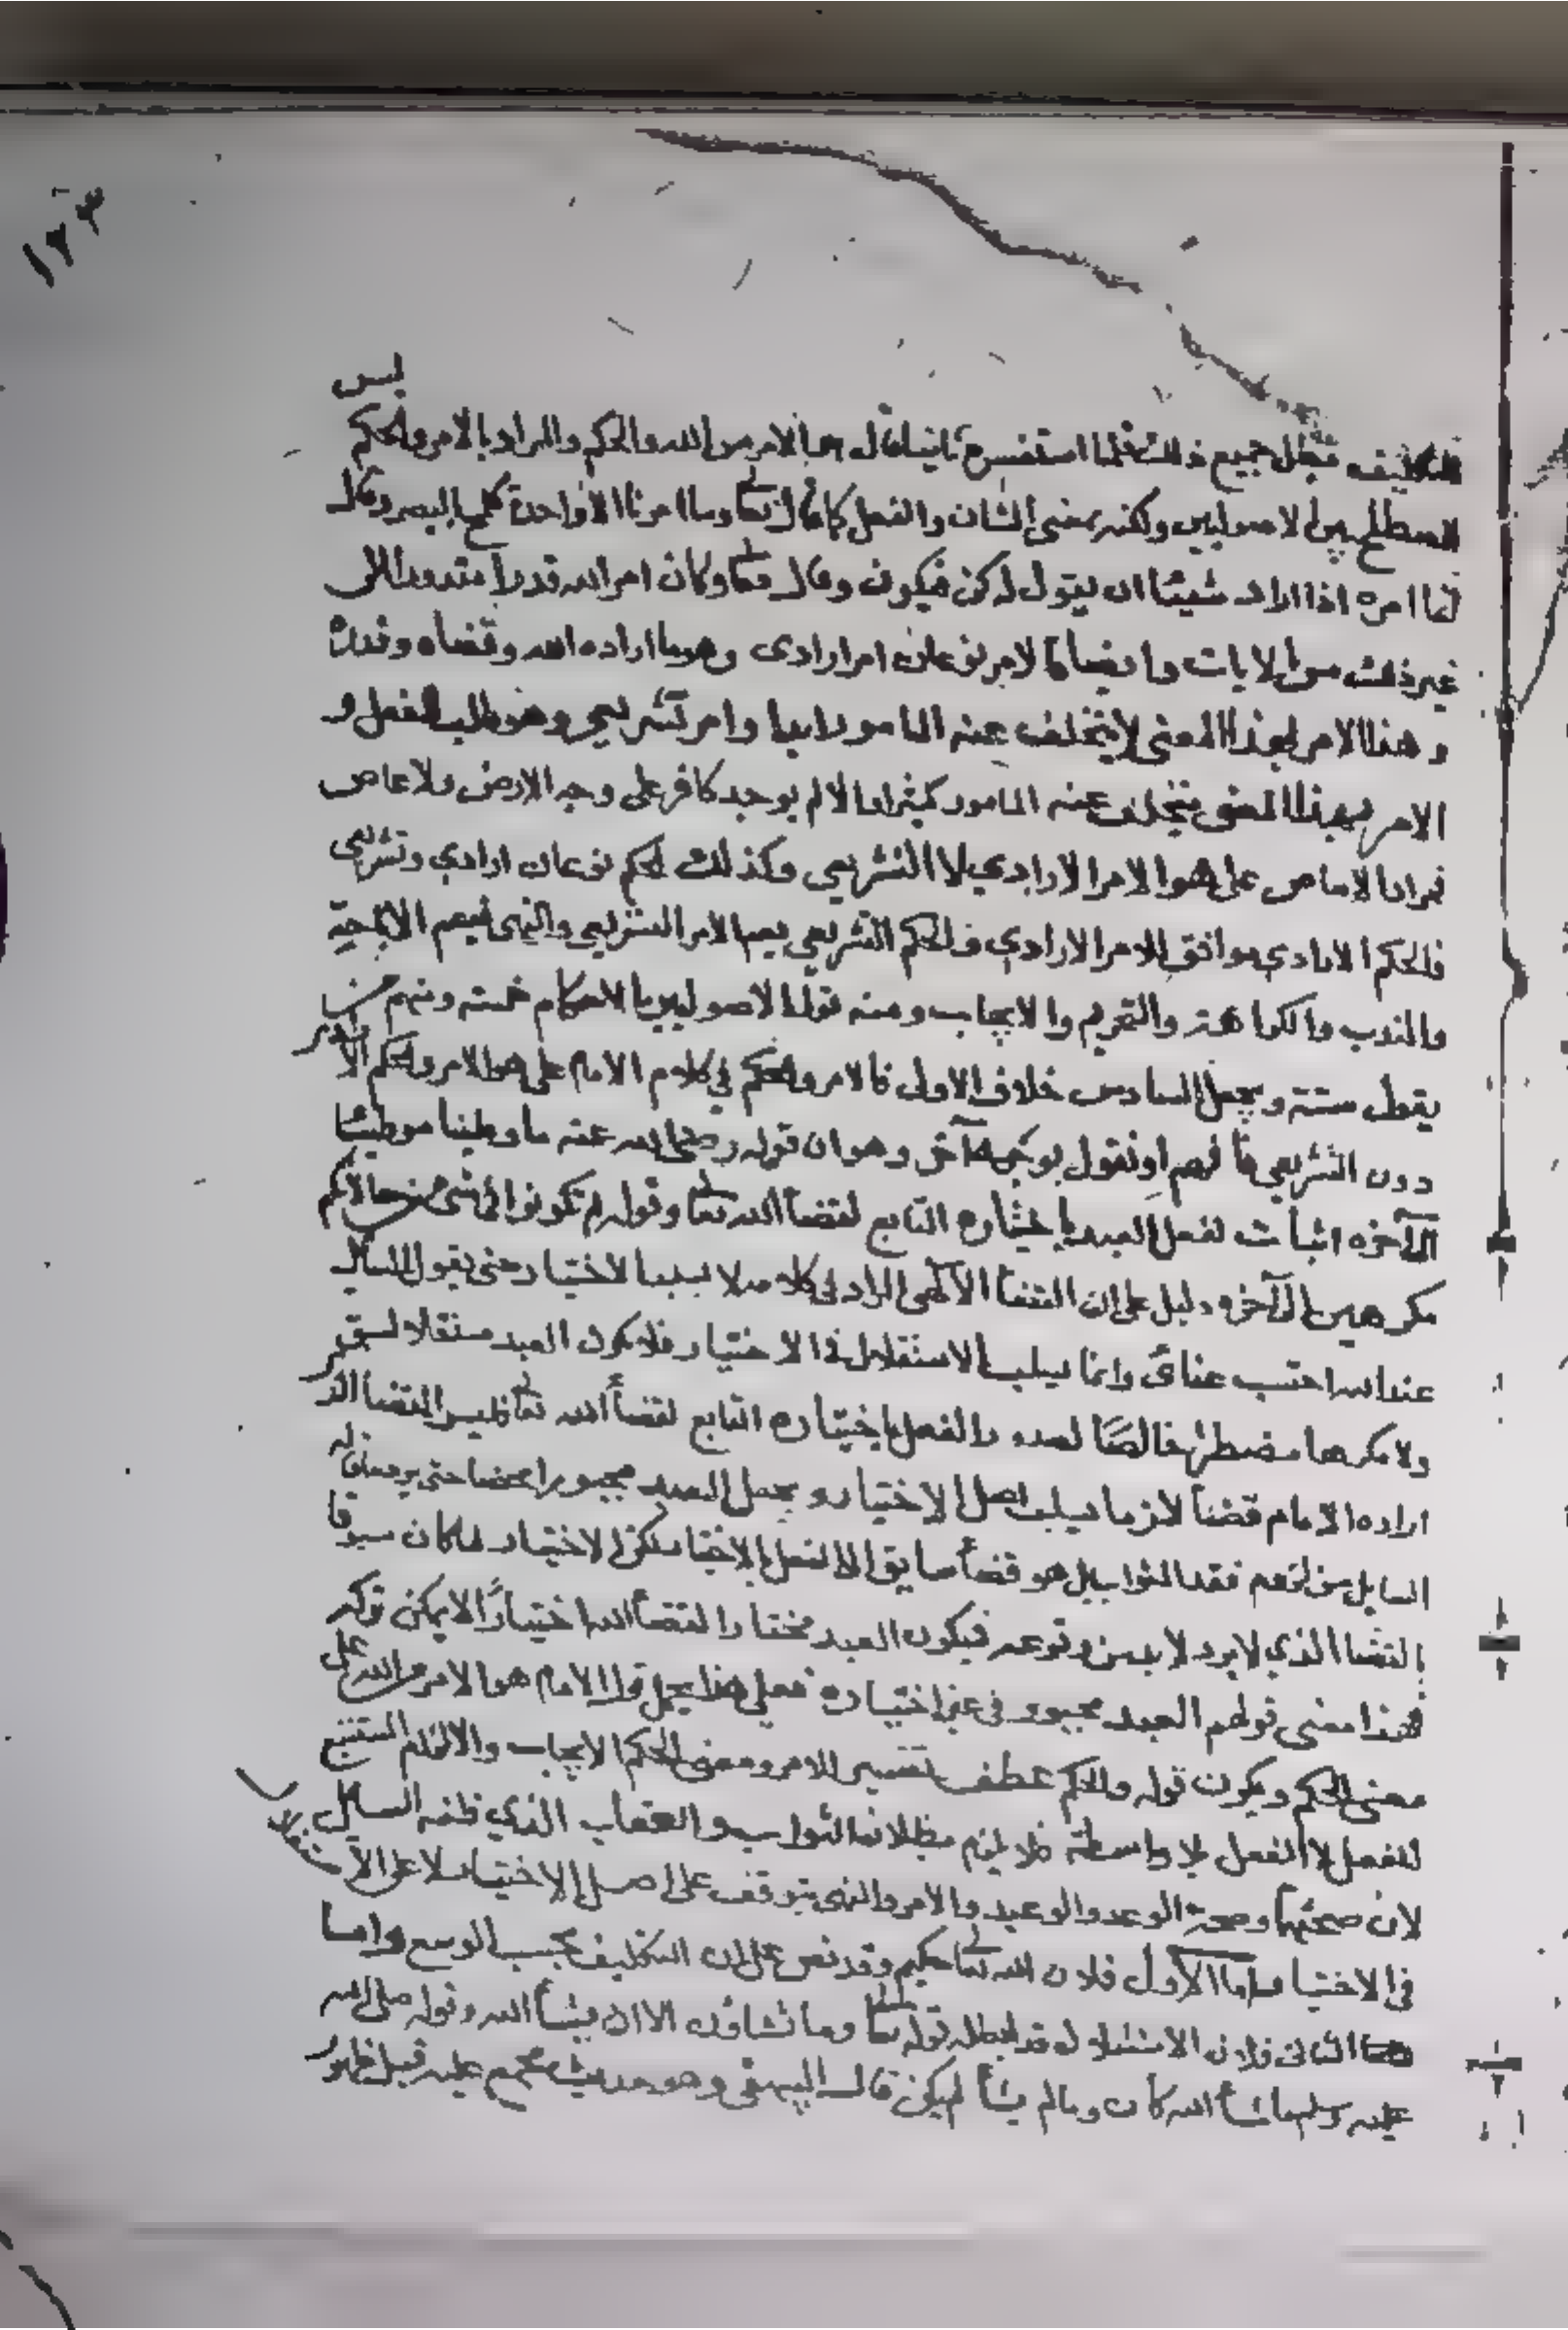 ١٢٣
ليس
التكليف فبطل جميع ذلك فلما استفسره ثانيا قال هو الامر من الله والحكم والمراد بالامر والحكم
المصطلح بين الاصوليين ولكنه بمعنى الشان والفعل كما قال تعالى وما امرنا الا واحدة كلمح بالبصر وقال
انما امره اذا اراد شيئا ان يقول له كن فيكون وقال تعالى وكان امر الله قدرا مقدورا الى
غير ذلك من الايات وايضا فالامر نوعان امر ارادي وهو ما اراده الله وقضاه وقدره
وهذا الامر بهذا المعنى لا يتخلف عنه المامور دايما وامر تشريعي وهو طلب الفعل و
الامر بهذا المعنى يتخلف عنه المامور كثيرا والا لم يوجد كافر على وجه الارض ولا عاص
فمراد الامام على هو الامر الارادي لا التشريعي وكذلك الحكم نوعان ارادي وتشريعي
فالحكم الارادي موافق للامر الارادي والحكم التشريعي يعم الامر التشريعي والنهي فيعم الاباحة
والندب والكراهة والتحريم والايجاب ومنه قول الاصوليين الاحكام خمسة ومنهم من
يقول ستة ويجعل السادس خلاف الاولى فالامر والحكم في كلام الامام على هو الامر والحكم الارادي
دون التشريعي فافهم او نقول بوجه آخر وهو ان قوله رضي الله عنه ما وطينا موطيئا
الى آخره اثبات لفعل العبد باختياره التابع لقضأ الله تعالى وقوله لم تكونوا في شي من حالاتكم
مكرهين الى آخره دليل على ان القضأ الالهي المراد في كلامه لا يسلب الاختيار حتى يقول السايل
عند الله احتسب عنائي وانما يسلب الاستقلال في الاختيار فلا يكون العبد مستقلا
ولا مكرها مضطرا خالصا لصدور الفعل باختياره التابع لقضأ الله تعالى فليس القضأ الذي
اراده الامام قضأ لازما يسلب اصل الاختيار ويجعل العبد مجبورا محضا حتى يرد ما قاله
السايل من لزوم فقد الثواب بل هو قضأ سابق الى الفعل بالاختيار لكن الاختيار لما كان مسبوقا
بالقضأ الذي لا يرد لا بد من وقوعه فيكون العبد مختارا لقضأ الله اختيارا لا يمكن تركه
فهذا معنى قولهم العبد مجبور في عين اختياره فعلى هذا يحمل قول الامام هو الامر من الله على
معنى الحكم ويكون قوله والحكم عطف تفسير للامر ومعنى الحكم الايجاب والالزام المستتبع
للفعل لا الفعل بلا واسطة فلا يلزم بطلان الثواب والعقاب الذي ظنه السايل
لان صحتهما وصحة الوعد والوعيد والامر والنهي يتوقف على اصل الاختيار لا على الاستقلال
في الاختيار اما الاول فلان الله تعالى حكيم وقد نص على ان التكليف بحسب الوسع واما
الثاني فلان الاستقلال قد ابطله قوله تعالى وما تشاؤن الا ان يشأ الله وقوله صلى الله
عليه وسلم ما شأ الله كان وما لم يشأ لم يكن قال البيهقي وهو حديث مجمع عليه قبل ظهور